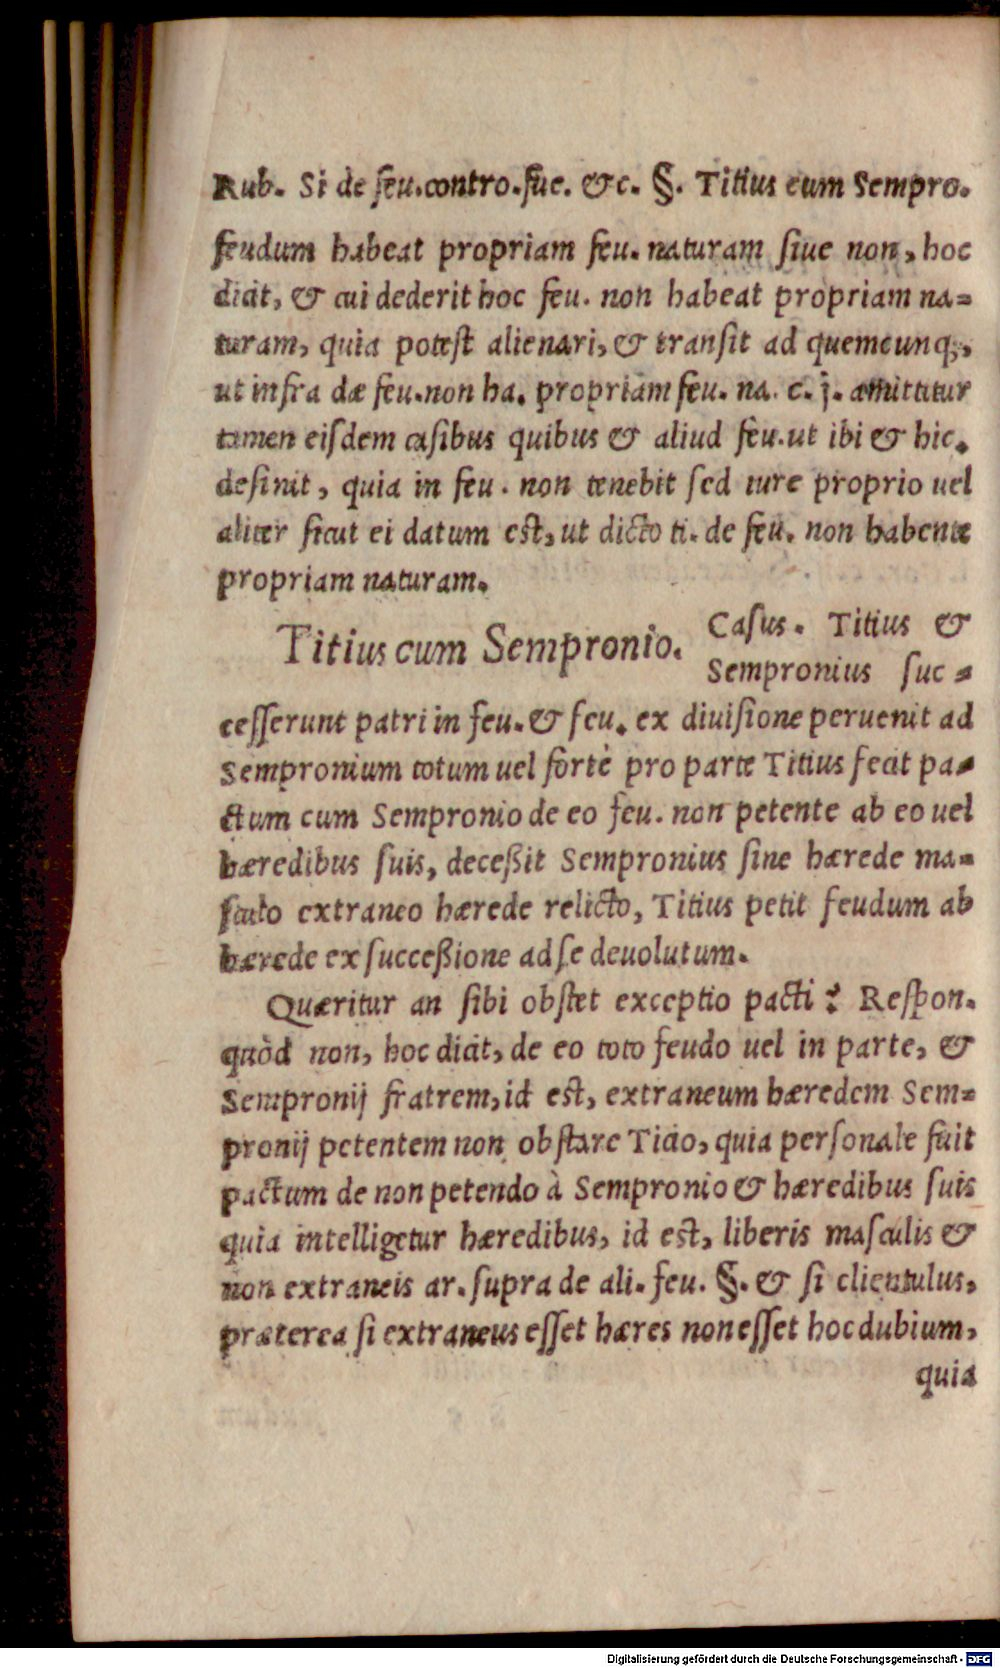 Rub. Si de feu.contro.fue. &c. §. Titius eum Sempro.
feudum habeat propriam feu. naturam siue non, hoc
dicit, & cui dederit hoc feu. non habeat propriam na-
turam, quia potest alienari, & transit ad quemcunq;,
ut infra de feu. non ha. propriam feu. na. c. j. amittitur
tamen eisdem casibus quibus & aliud feu. ut ibi & hic.
desinit, quia in feu. non tenebit sed iure proprio uel
aliter sicut ei datum est, ut dicto ti. de feu. non habente
propriam naturam.
Titius cum Sempronio. Casus. Titius &
Sempronius suc-
cesserunt patri in feu. & feu. ex diuisione peruenit ad
Sempronium totum uel fortè pro parte Titius fecit pa-
ctum cum Sempronio de eo feu. non petente ab eo uel
hæredibus suis, deceßit Sempronius sine hærede ma-
sculo extraneo hærede relicto, Titius petit feudum ab
hærede ex succeßione ad se deuolutum.
Quæritur an sibi obstet exceptio pacti? Respon.
quòd non, hoc dicit, de eo toto feudo uel in parte, &
Sempronij fratrem, id est, extraneum hæredem Sem-
pronij petentem non obstare Ticio, quia personale fuit
pactum de non petendo à Sempronio & hæredibus suis
quia intelligetur hæredibus, id est, liberis masculis &
non extraneis ar. supra de ali. feu. §. & si clientulus,
præterea si extraneus esset hæres non esset hoc dubium,
quia
Digitalisierung gefördert durch die Deutsche Forschungsgemeinschaft - DFG